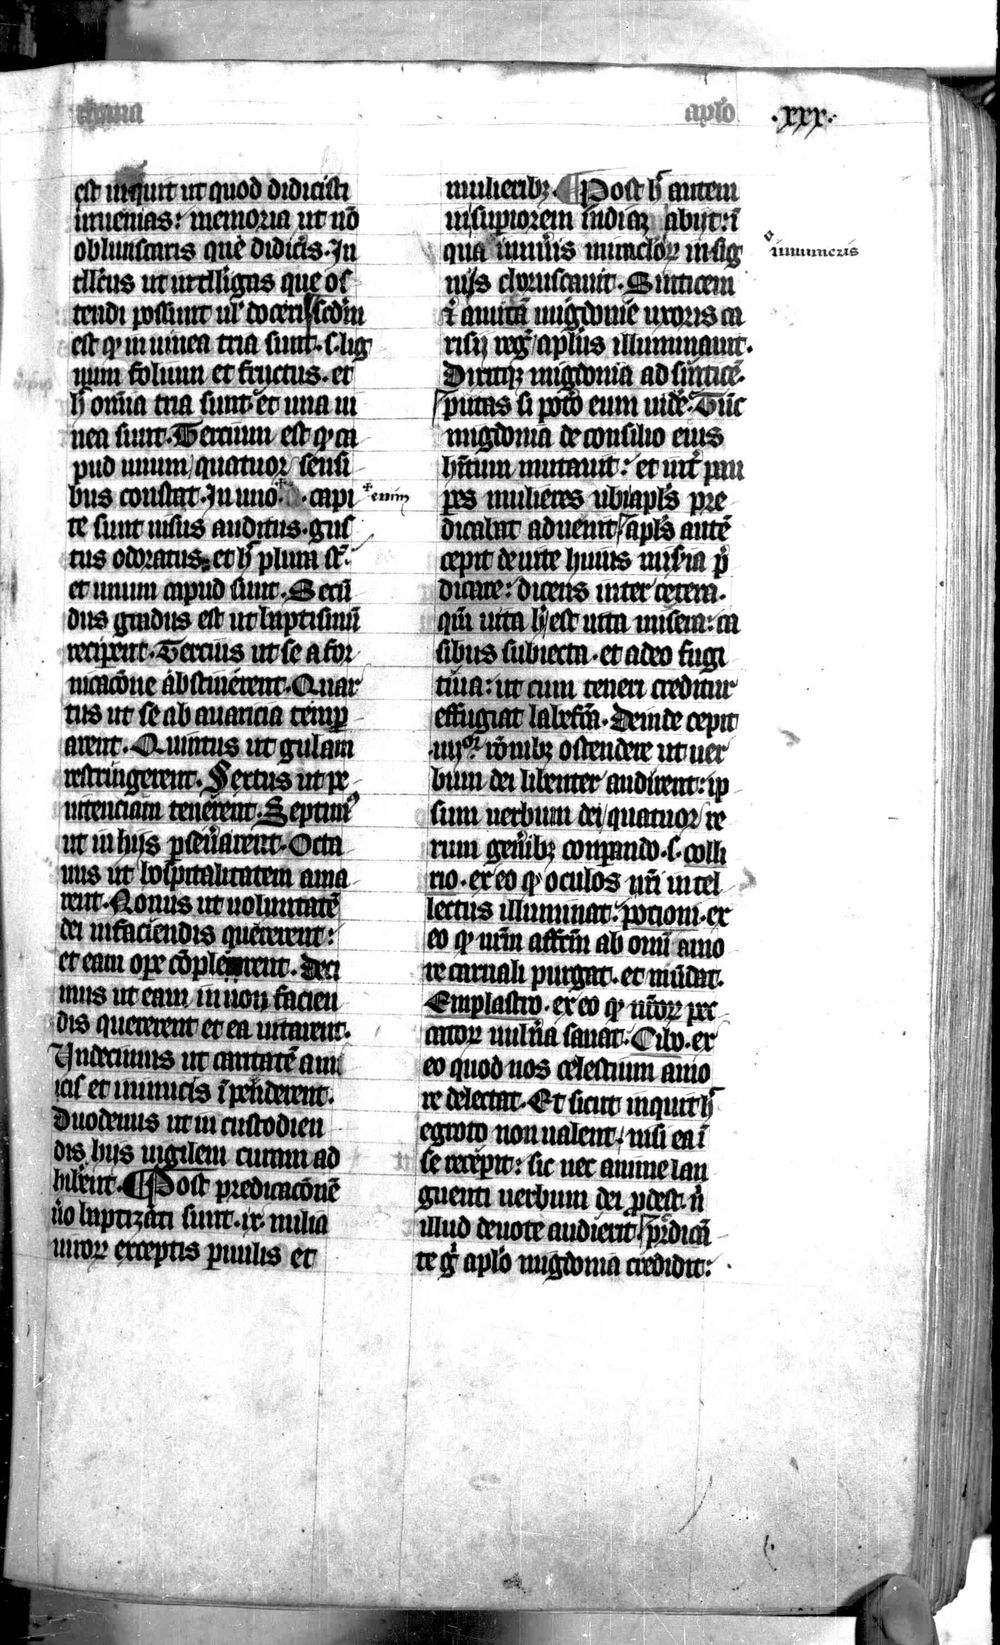 aplo
.xxx.
est inquit ut quod didicisti
inuenias: memoria ut nō
obliuiscaris que didicīs. In
tll'cus ut ītelligas que os
tendi possunt ul' doceri scdm
est qͥ in uinea tria sunt. s. lig
num folium et fructus. et
h' omīa tria sunt et una ui
nea sunt. Tercium est qͥ ca
pud unum quatuor sensi
bus constat. In uno . capi
enim
te sunt uisus auditus. gus
tus odoratus. et h' plura st̄.
et unum capud sunt. Secū
dus gradus est ut baptismū
reciperent. Tercius ut se a for
nicacōne abstinerent. Quar
tus ut se ab auaricia temp
arent. Quintus ut gulam
restringerent. Sextus ut pe
nitenciam tenerent. Septimꝰ
ut in hijs pseuarent. Octa
uus ut hospitalitatem ama
rent. Nonus ut uoluntatē
dei in faciendis quererent:
et eam ope cōplerent. Deci
mus ut eam in non facien
dis quererent et ea uitarent.
Vndecimus ut caritatē ami
icis et inimicis īpenderent.
Duodenus ut in custodien
dis hijs uigilem curam ad
hiberent. ¶Post predicacōnē
ūo baptizati sunt. ix. milia
uiror̄ exceptis puulis et
mulieribꝫ. ¶Post h' autem
in supiorem indiaꝫ abijt: ī
qua innūis miraclor̄ insig
innumeris
nijs choruscauit. Sinticem
et amicā migdonie uxoris ca
risij reḡ aplus illuminauit.
Dixitqꝫ migdonia ad sinticē.
putas si poto eum uidē. Tūc
migdonia de consilio eius
h̄itum mutauit: et int̄ pau
pes mulieres ubi apl's pre
dicabat aduenit apl's autē
cepit de uite huius mis'ia p̄
dicare: dicens inter cetera.
qm̄ uita h' est uita misera: ca
sibus subiecta. et adeo fugi
tiua: ut cum teneri creditur
effugiat labefcā. Deinde cepit
.iiijor. rōnibꝫ ostendere ut uer
bum dei libenter audirent: ip
sum uerbum dei quatuor re
rum gen̄ibꝫ conpando. s. colli
rio. ex eo qͥ oculos nr̄i intel
lectus illuminat: potioni. ex
eo qͥ nrm̄ affcm̄ ab omī amo
re carnali purgat. et mūdat.
Emplastro. ex eo qͥ nr̄or̄ pec
cator̄ uuln̄a sanat. Cibo. ex
eo quod nos celestium amo
re delectat. Et sicut inquit h'
egroto non ualent. nisi ea ī
se recēpit: sic nec anime lan
guenti uerbum dei pdest. n̄
illud deuote audierit p̄dicā
te g̊ aplo migdonia credidit: